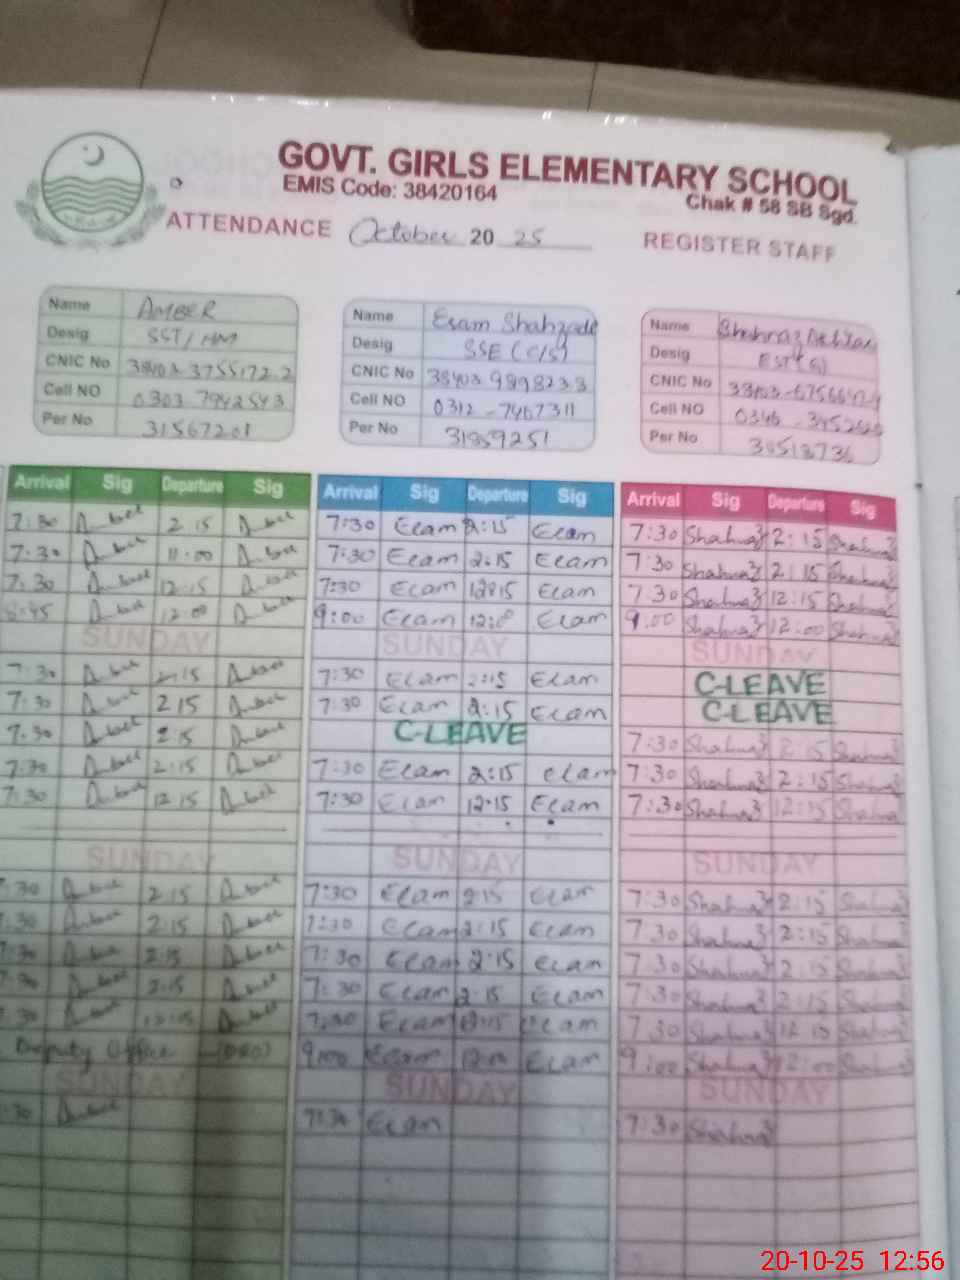 GOVT. GIRLS ELEMENTARY SCHOOL
EMIS Code: 38420164
Chak # 58 SB Sgd.
ATTENDANCE October 20 25 REGISTER STAFF
Name AMBER
Desig SST/HM
CNIC No
Cell NO 0303 7942543
Per No 31567201
Name Ecam Shahzadi
Desig SSE (C/S)
CNIC No
Cell NO 0312-7467311
Per No 31859251
Name Shahnaz Akhtar
Desig EST(G)
CNIC No
Cell NO
Per No
Arrival Sig Departure Sig Arrival Sig Departure Sig Arrival Sig Departure Sig
7:30 Amber 2 15 Amber 7:30 Ecam 2:15 Ecam 7:30 Shahnaz 2:15 Shahnaz
7:30 Amber 11:00 Amber 7:30 Ecam 2:15 Ecam 7:30 Shahnaz 2:15 Shahnaz
7:30 Amber 12:15 Amber 7:30 Ecam 12:15 Ecam 7:30 Shahnaz 12:15 Shahnaz
8:45 Amber 12:00 Amber 9:00 Ecam Ecam 9:00 Shahnaz 12:00 Shahnaz
SUNDAY SUNDAY SUNDAY
7:30 Amber 2:15 Amber 7:30 Ecam 2:15 Ecam C-LEAVE
7:30 Amber 2 15 Amber 7:30 Ecam 2:15 Ecam C-LEAVE
7:30 Amber 2:15 Amber C-LEAVE 7:30 Shahnaz 2:15 Shahnaz
7:30 Amber 2:15 Amber 7:30 Ecam 2:15 Ecam 7:30 Shahnaz 2:15 Shahnaz
7:30 Amber 12 15 Amber 7:30 Ecam 12:15 Ecam 7:30 Shahnaz 12:15 Shahnaz
SUNDAY SUNDAY SUNDAY
:30 Amber 2:15 Amber 7:30 Ecam 2:15 Ecam 7:30 Shahnaz 2:15 Shahnaz
:30 Amber 2:15 Amber 7:30 Ecam 2:15 Ecam 7:30 Shahnaz 2:15 Shahnaz
:30 Amber 2:15 Amber 7:30 Ecam 2:15 Ecam 7:30 Shahnaz 2:15 Shahnaz
:30 Amber 2:15 Amber 7:30 Ecam 2:15 Ecam 7:30 Shahnaz 2:15 Shahnaz
:30 Amber Amber 7:30 Ecam Ecam 7:30 Shahnaz Shahnaz
Deputy Office 9:00 Ecam Ecam 9:00 Shahnaz 12:00 Shahnaz
SUNDAY SUNDAY SUNDAY
:30 Amber 7:30 Ecam 7:30 Shahnaz
20-10-25 12:56